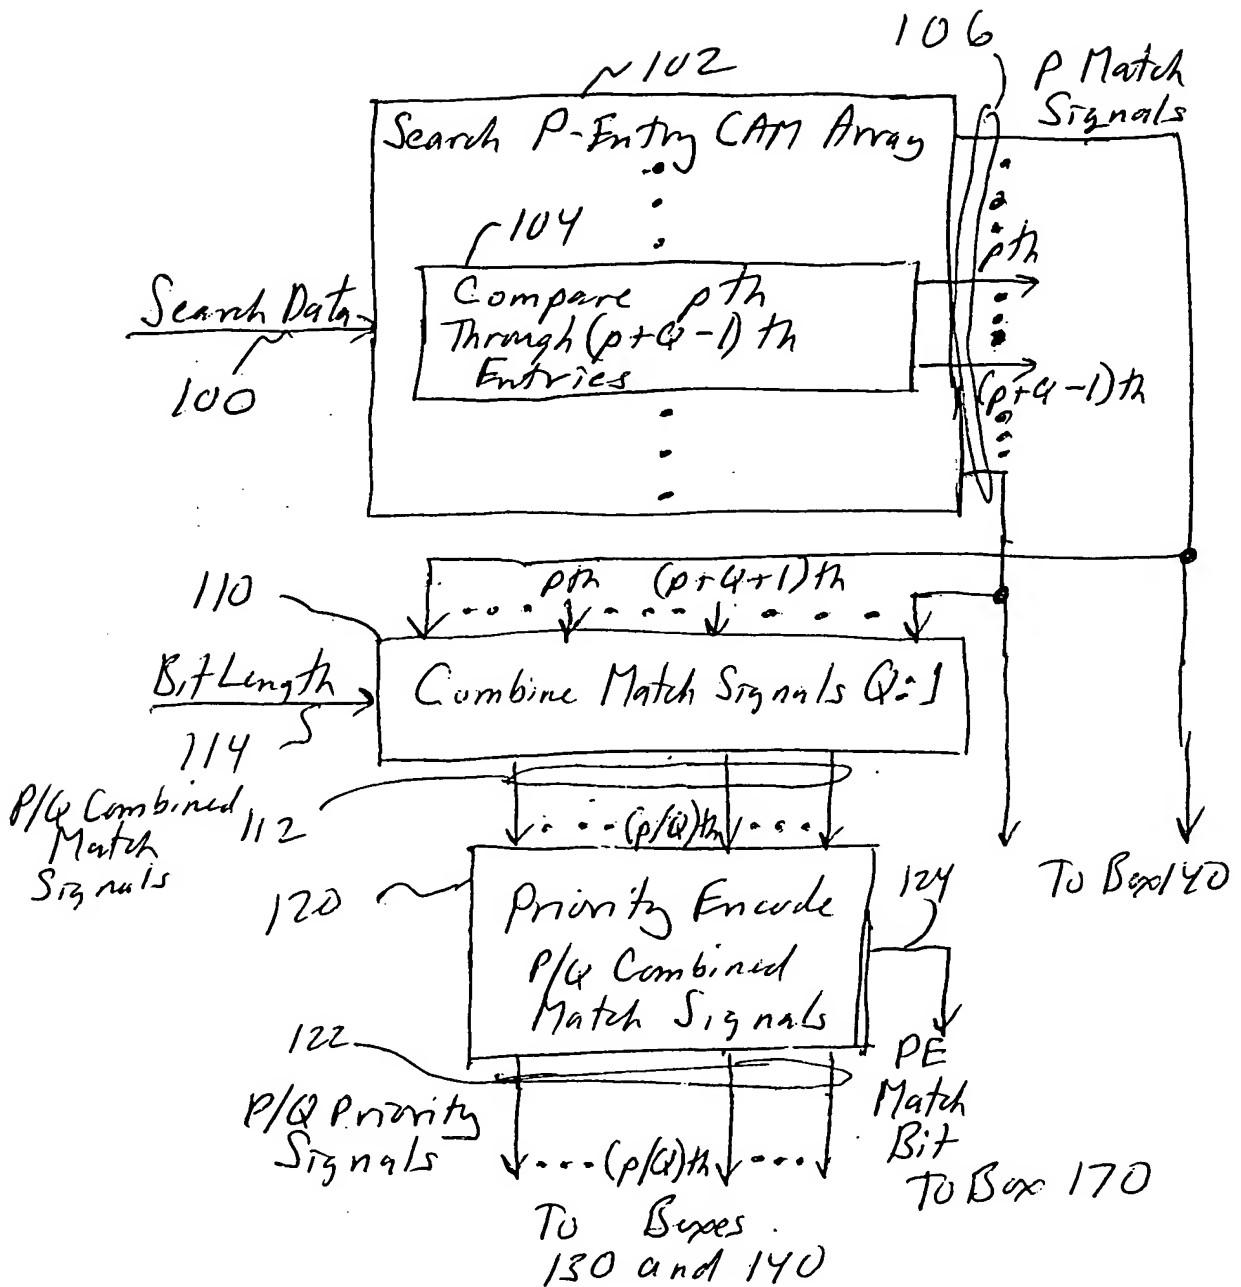 106
102
P Match
Signals
Search P-Entry CAM Array
104
pth
Compare pth
Through (p+Q-1)th
Entries
Search Data
100
(p+Q-1)th
110
pth (p+Q+1)th
Bit Length
114
Combine Match Signals Q:1
P/Q Combined
Match
Signals
112
(p/Q)th
120
Priority Encode
P/Q Combined
Match Signals
124
To Box 140
122
P/Q Priority
Signals
PE
Match
Bit
To Box 170
(p/Q)th
To Boxes
130 and 140